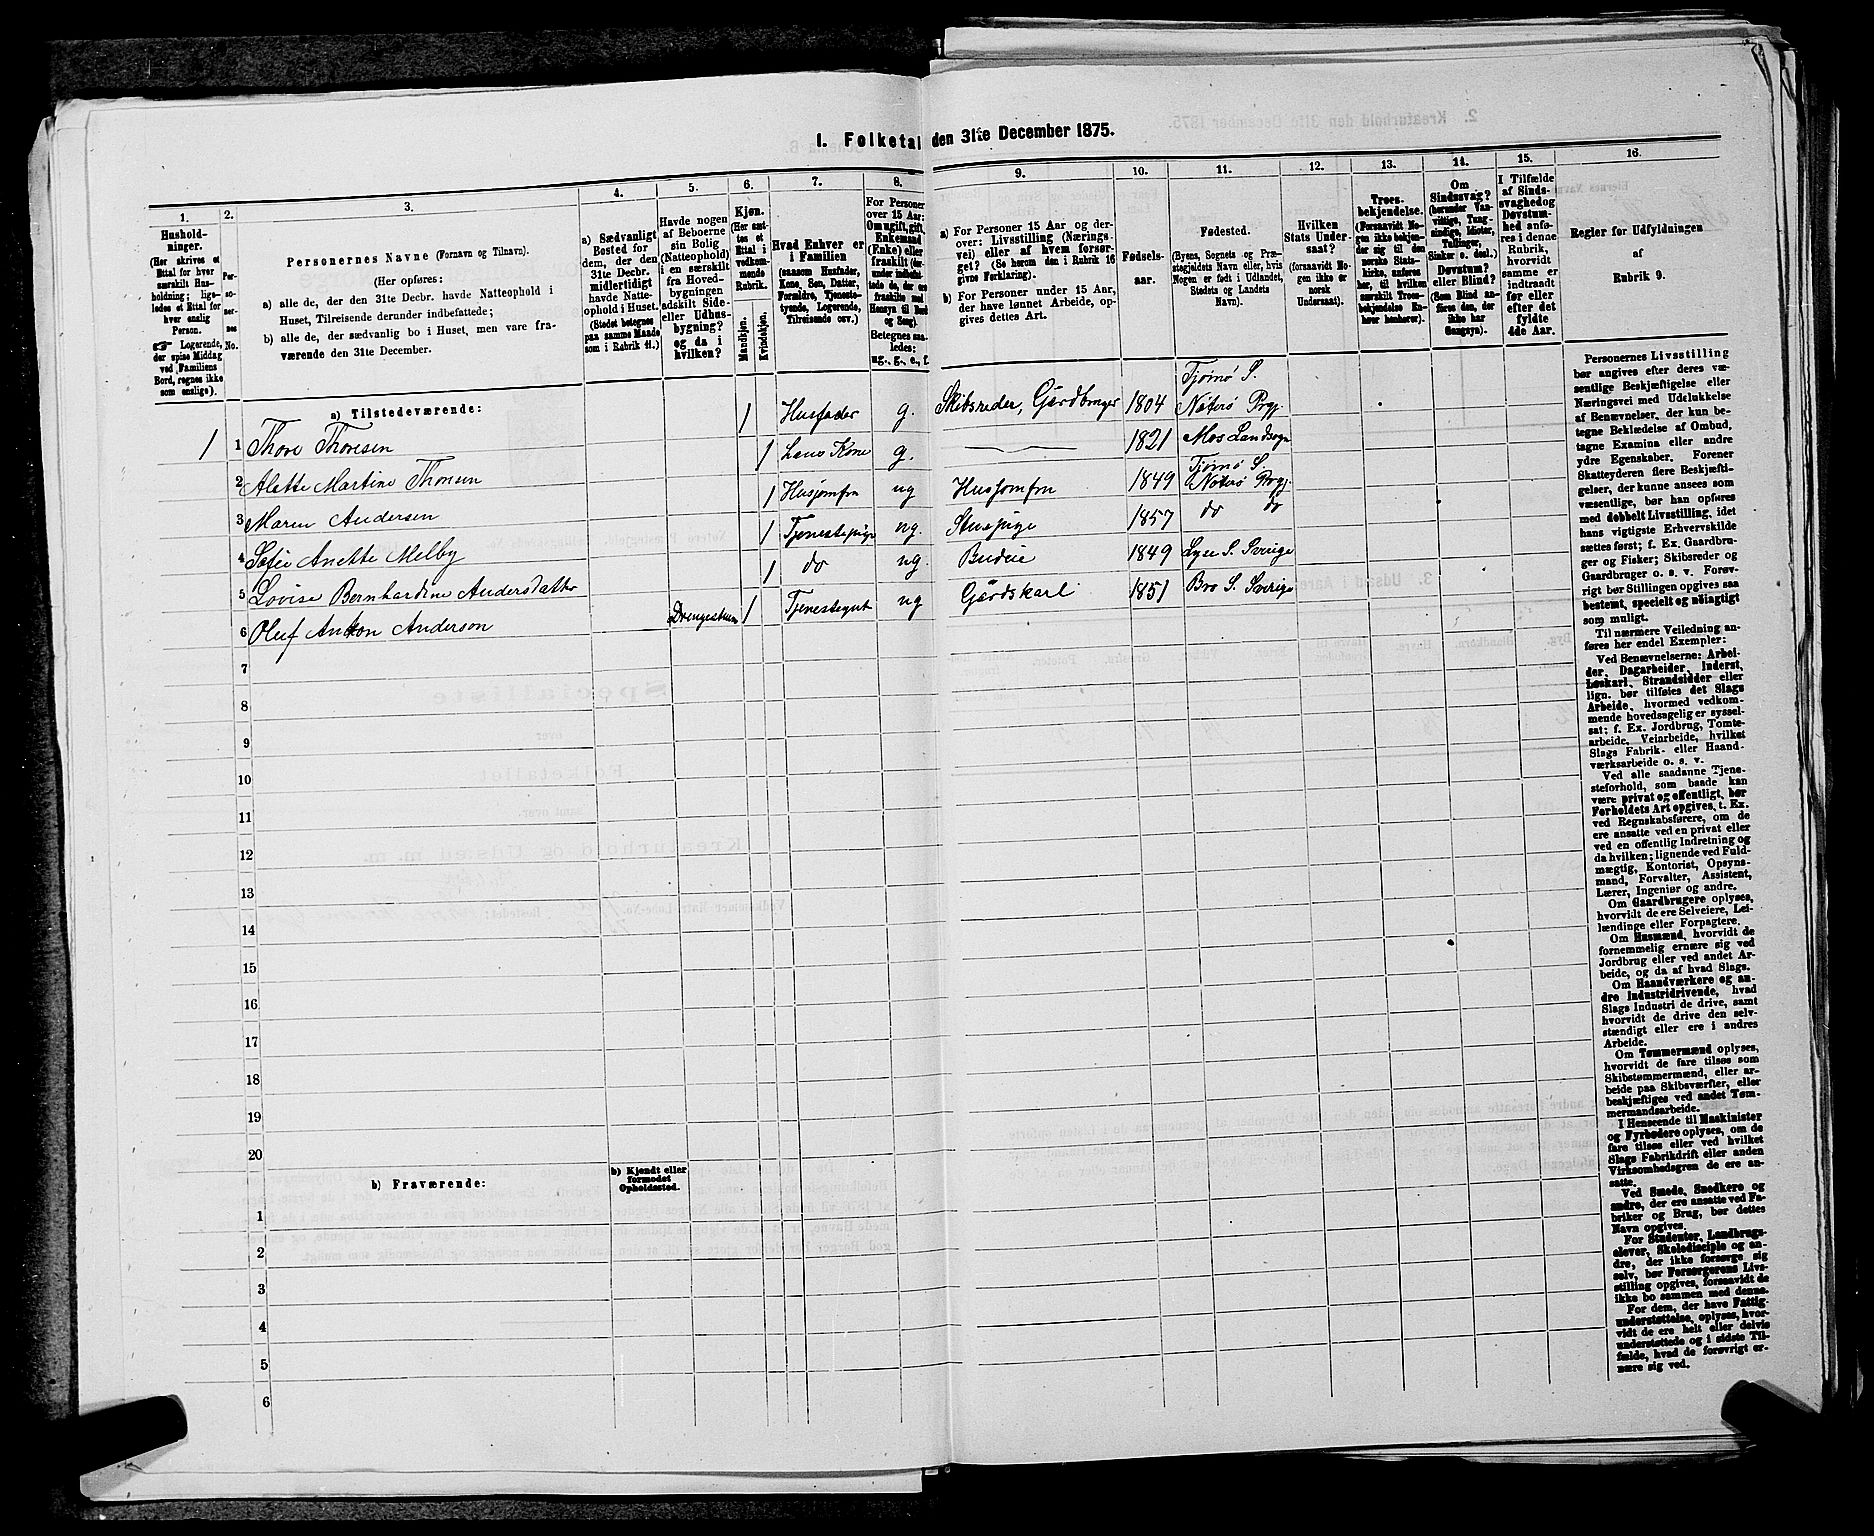 1. Folketal den 31te December 1875.
1. 2. 3. 4. 5. 6. 7. 8. 9. 10. 11. 12. 13. 14. 15. 16.
Hushold-
ninger.
(Her skrives et
Ettal for hver
særskilt Hus-
holdning; lige-
ledes et Ettal for
hver enslig
Person.
☞ Logerende,
der spise Middag
ved Familiens
Bord, regnes ikke
som enslige).
Per-
so-
ner-
nes
No.
Personernes Navne (Fornavn og Tilnavn).
(Her opføres:
a) alle de, der den 31te Decbr. havde Natteophold i
Huset, Tilreisende derunder indbefattede;
b) alle de, der sædvanlig bo i Huset, men vare fra-
værende den 31te December.
a) Sædvanligt
Bosted for
dem, der den
31te Decbr.
midlertidigt
havde Natte-
ophold i Huset.
(Stedet betegnes
paa samme Maade
som i Rubrik 11.)
Havde nogen
af Beboerne
sin Bolig
(Natteophold)
i en særskilt
fra Hoved-
bygningen
adskilt Side-
eller Udhus-
bygning?
og da i
hvilken?
Kjøn.
(Her sæt-
tes et
Ettal i
vedkom-
mende
Rubrik.
Mandkjøn.
Kvindekjøn.
Hvad Enhver er
i Familien
(saasom Husfader,
Kone, Søn, Datter,
Forældre, Tjeneste-
tyende, Logerende,
Tilreisende osv.)
For Personer
over 15 Aar:
Om ugift, gift,
Enkemand
(Enke) eller
fraskilt
Betegnes saa-
ledes:
ug., g., e., f.
a) For Personer 15 Aar og der-
over: Livsstilling (Nærings-
vei) eller af hvem forsør-
get? (Se herom den i Rubrik 16
givne Forklaring).
b) For Personer under 15 Aar,
der have lønnet Arbeide, op-
gives dettes Art.
Fødsels-
aar.
Fødested.
(Byens, Sognets og Præ-
stegjeldets Navn eller, hvis
Nogen er født i Udlandet,
Stedets og Landets
Navn).
Hvilken
Stats Under-
saat?
(forsaavidt No-
gen ikke er
norsk
Undersaat).
Troes-
bekjendelse.
(Forsaavidt No-
gen ikke bekjen-
der sig til den
norske Stats-
kirke, anføres
her, til hvilken
særskilt Troes-
bekjendelse En-
hver henhører).
Om
Sindssvag?
(herunder Van-
vittige, Tung-
sindige, Idioter,
Tullinger,
Sinker o. desl.)
Døvstum?
eller Blind?
(Som Blind an-
føres den, der
ikke har
Gangsyn).
I Tilfælde
af Sinds-
svaghed og
Døvstum-
hed anfø-
res i denne
Rubrik,
hvorvidt
samme er
indtraadt
før eller
efter det
fyldte
4de Aar.
Regler for Udfyldningen
af
Rubrik 9.
a) Tilstedeværende:
1 1 Thore Thoresen 1 Husfader g. Skibsreder, Gårdbruger 1804 Tjømø S. Nøterø Prgj.
2 Alette Martine Thoresen 1 hans Kone g. 1821 Mos Landsogn
3 Maren Andersen 1 Husjomfru ug Husjomfru 1849 Tjømø S. Nøterø Prgj.
4 Sofie Anette Melby 1 Tjenestepige ug. Stuepige 1857 do do
5 Lovise Bernhardine Andersdatter 1 do ug. Budeie 1849 Lyse S. Sverige
6 Oluf Anton Anderson Drengestuen 1 Tjenestegut ug Gårdskarl 1851 Bro S. Sverige
7
8
9
10
11
12
13
14
15
16
17
18
19
20
b) Fraværende:
b) Kjendt eller
formodet
Opholdssted.
1
2
3
4
5
6
Personernes Livsstilling
bør angives efter deres væ-
sentlige Beskjæftigelse eller
Næringsvei med Udelukkelse
af Benævnelser, der kun be-
tegne Beklædelse af Ombud,
tagne Examina eller andre
ydre Egenskaber. Forener
Skatteyderen flere Beskjæfti-
gelser, der kunne ansees som
væsentlige, bør han opføres
med dobbelt Livsstilling, idet
hans vigtigste Erhvervskilde
sættes først; f. Ex. Gaardbru-
ger og Fisker; Skibsreder og
Gaardbruger o. s. v. Forøv-
rigt bør Stillingen opgives saa
bestemt, specielt og nøiagtigt
som muligt.
Til nærmere Veiledning an-
føres her endel Exempler:
Ved Benævnelserne: Arbei-
der, Dagarbeider, Inderst,
Løskarl, Strandsidder eller
lign. bør tilføies det Slags
Arbeide, hvormed vedkom-
mende hovedsagelig er syssel-
sat; f. Ex. Jordbrug, Tomte-
arbeide, Veiarbeide, hvilket
Slags Fabrik- eller Haand-
værksarbeide o. s. v.
Ved alle saadanne Tjene-
steforhold, som baade kan
være privat og offentligt, bør
Forholdets Art opgives, t. Ex.
ved Regnskabsførere, om de
ere ansatte ved en privat eller
ved en offentlig Indretning og
da hvilken; lignende ved Fuld-
mægtig, Kontorist, Opsyns-
mand, Forvalter, Assistent,
Lærer, Ingeniør og andre.
Om Gaardbrugere oplyses,
hvorvidt de ere Selveiere, Lei-
lændinge eller Forpagtere.
Om Husmænd, hvorvidt de
fornemmelig ernære sig ved
Jordbrug eller ved andet Ar-
beide, og da af hvad Slags.
Om Haandværkere og an-
dre Industridrivende, hvad
Slags Industri de drive, samt
hvorvidt de drive den selv-
stændigt eller ere i andres
Arbeide.
Om Tømmermænd oplyses,
hvorvidt de fare tilsøs som
Skibstømmermænd, eller ar-
beide paa Skibsværfter, eller
beskjæftiges ved andet Tøm-
mermandsarbeide.
I Henseende til Maskinister
og Fyrbødere oplyses, om de
fare tilsøs eller ved hvilket
Slags Fabrikdrift eller anden
Virksomhedsgren de ere an-
satte.
Ved Smede, Snedkere og
andre, der ere ansatte ved Fa-
briker og Brug, bør dettes
Navn opgives.
For Studenter, Landbrugs-
elever, Skoledisciple og an-
dre, der ikke forsørge sig
selv, bør Forsørgerens Livs-
stilling opgives, forsaavidt de
ikke bo sammen med denne.
For dem, der have Fattig-
understøttelse, oplyses, hvor-
vidt de ere helt eller delvis
understøttede og i sidste Til-
fælde, hvad de forøvrigt er-
nære sig ved.